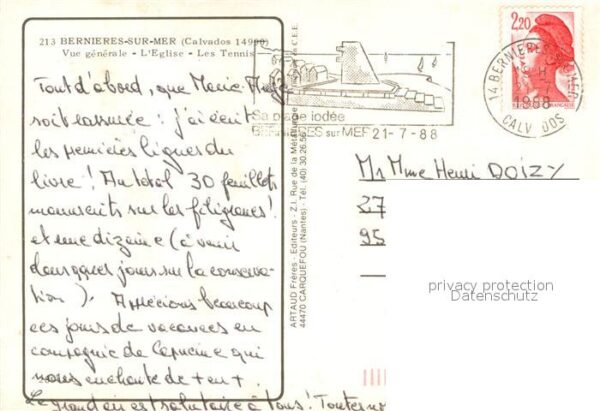 213 BERNIERES-SUR-MER (Calvados 14990)
Vue générale - L'Eglise - Les Tennis
Tout d'abord, que Marie
soit rassurée : j'ai écrit
les premières lignes du
livre ! Au total 30 feuillets
manuscrits sur les filigranes !
et une dizaine (à venir
dans jours sur la conserva-
tion ). Apprécions beaucoup
ces jours de vacances en
compagnie de Capucine qui
nous enchante de + en + .
Le grand air est salutaire à tous !
ARTAUD Frères - Editeurs - Z.I. Rue de la Métallurgie
44470 CARQUEFOU (Nantes) - Tél. (40) 30.26.56
C.E.E.
Sa plage iodée
BERNIERES sur MER 21-7-88
14 BERNIERES MER
1988
CALVADOS
2,20
FRANÇAISE
Mr Mme Henri DOIZY
27
95
privacy protection
Datenschutz